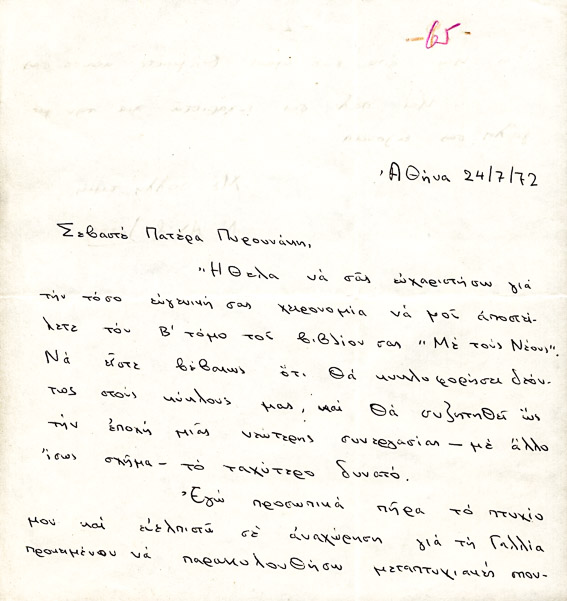 -65-
Ἀθήνα 24/7/72
Σεβαστέ Πατέρα Πυρουνάκη,
Ἤθελα νὰ σᾶς εὐχαριστήσω γιά
τὴν τόσο εὐγενική σας χειρονομία νὰ μοῦ ἀποστεί-
λετε τὸν Β' τόμο τοῦ βιβλίου σας "Μὲ τοὺς Νέους".
Νὰ εἶστε βέβαιος ὅτι θὰ κυκλοφορήσει δεόν-
τως στοὺς κύκλους μας, καὶ θὰ συζητηθεῖ ὡς
τὴν ἐποχή μιᾶς νεώτερης συνεργασίας – μὲ ἄλλο
ἴσως σχῆμα – τὸ ταχύτερο δυνατό.
Ἐγώ προσωπικά πῆρα τὸ πτυχίο
μου καὶ εὐελπιστῶ σὲ ἀναχώρηση γιά τὴ Γαλλία
προκειμένου νὰ παρακολουθήσω μεταπτυχιακές σπου-